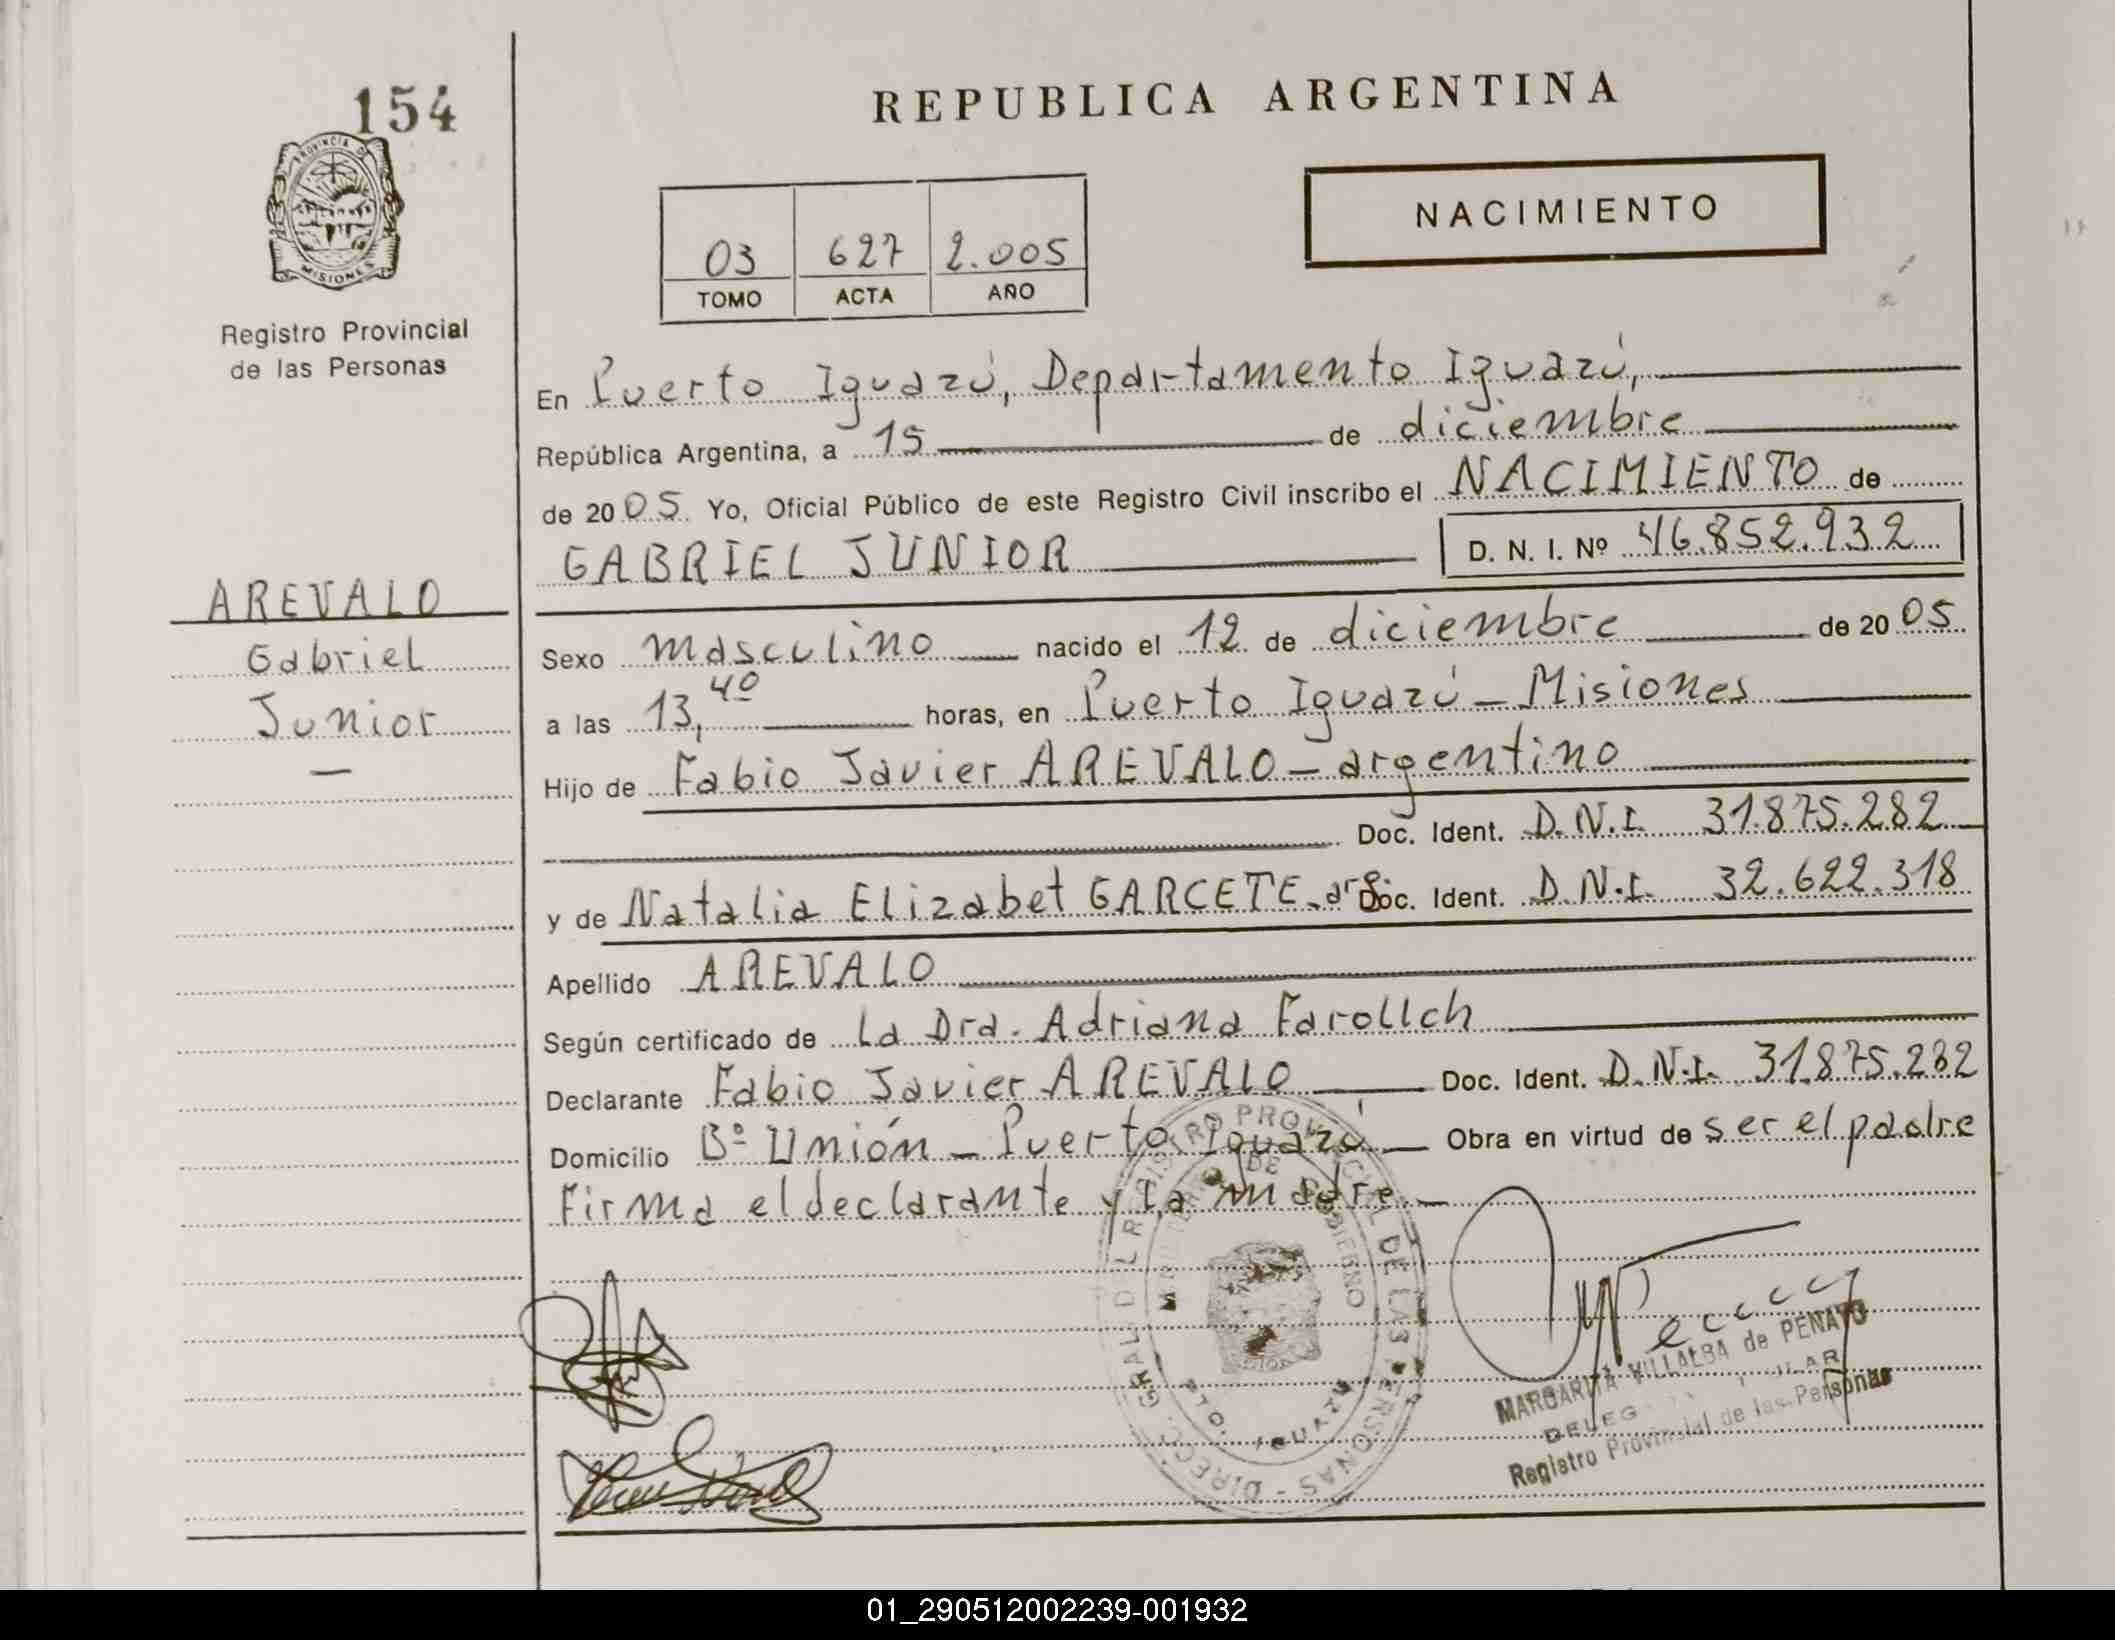 154
REPUBLICA ARGENTINA
PROVINCIA DE
MISIONES
Registro Provincial
de las Personas
NACIMIENTO
03 627 2.005
TOMO ACTA AÑO
En Puerto Iguazú, Departamento Iguazú,
República Argentina, a 15 de diciembre
de 2005 Yo, Oficial Público de este Registro Civil inscribo el NACIMIENTO de
GABRIEL JUNIOR D. N. I. Nº 46.852.932
AREVALO
Gabriel
Junior
—
Sexo masculino nacido el 12 de diciembre de 2005
a las 13,40 horas, en Puerto Iguazú - Misiones
Hijo de Fabio Javier AREVALO - argentino
Doc. Ident. D.N.I. 31.875.282
y de Natalia Elizabet GARCETE - arg. Doc. Ident. D.N.I. 32.622.318
Apellido AREVALO
Según certificado de La Dra. Adriana Farollch
Declarante Fabio Javier AREVALO Doc. Ident. D.N.I. 31.875.282
Domicilio Bº Unión - Puerto Iguazú Obra en virtud de ser el padre
Firma el declarante y la madre.
DIRECC. GRAL. DEL REGISTRO PROVINCIAL DE LAS PERSONAS
MINISTERIO DE GOBIERNO
PTO. IGUAZU
MARGARITA VILLALBA de PENAYO
Registro Provincial de las Personas
01_290512002239-001932